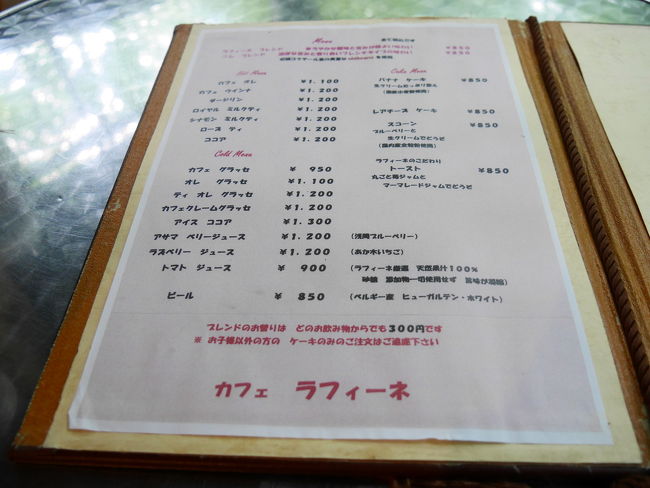 Menu
全て税込です
ラフィーネ ブレンド ¥850
フレ ブレンド ¥850
Hot Menu
カフェ オレ ¥1.100
カフェ ウインナ ¥1.200
ダージリン ¥1.200
ロイヤル ミルクティ ¥1.200
シナモン ミルクティ ¥1.200
ローズ ティ ¥1.200
ココア ¥1.200
Cold Menu
カフェ グラッセ ¥ 950
オレ グラッセ ¥1.100
ティ オレ グラッセ ¥1.200
カフェクレームグラッセ ¥1.200
アイス ココア ¥1.300
アサマ ベリージュース ¥1.200 (浅間ブルーベリー)
ラズベリー ジュース ¥1.200 (あか木いちご)
トマト ジュース ¥ 900 (ラフィーネ厳選 天然果汁100%
砂糖 添加物一切使用せず 旨味が凝縮)
ビール ¥ 850 (ベルギー産 ヒューガルテン・ホワイト)
Cake Menu
バナナ ケーキ ¥850
生クリームたっぷり添え
(国産小麦粉使用)
レアチーズ ケーキ ¥850
スコーン ¥850
ブルーベリーと
生クリームでどうぞ
(国内産全粒粉使用)
ラフィーネのこだわり
トースト ¥850
丸ごと苺ジャムと
マーマレードジャムでどうぞ
ブレンドのお替りは どのお飲み物からでも300円です
※ お子様以外の方の ケーキのみのご注文はご遠慮下さい
カフェ ラフィーネ